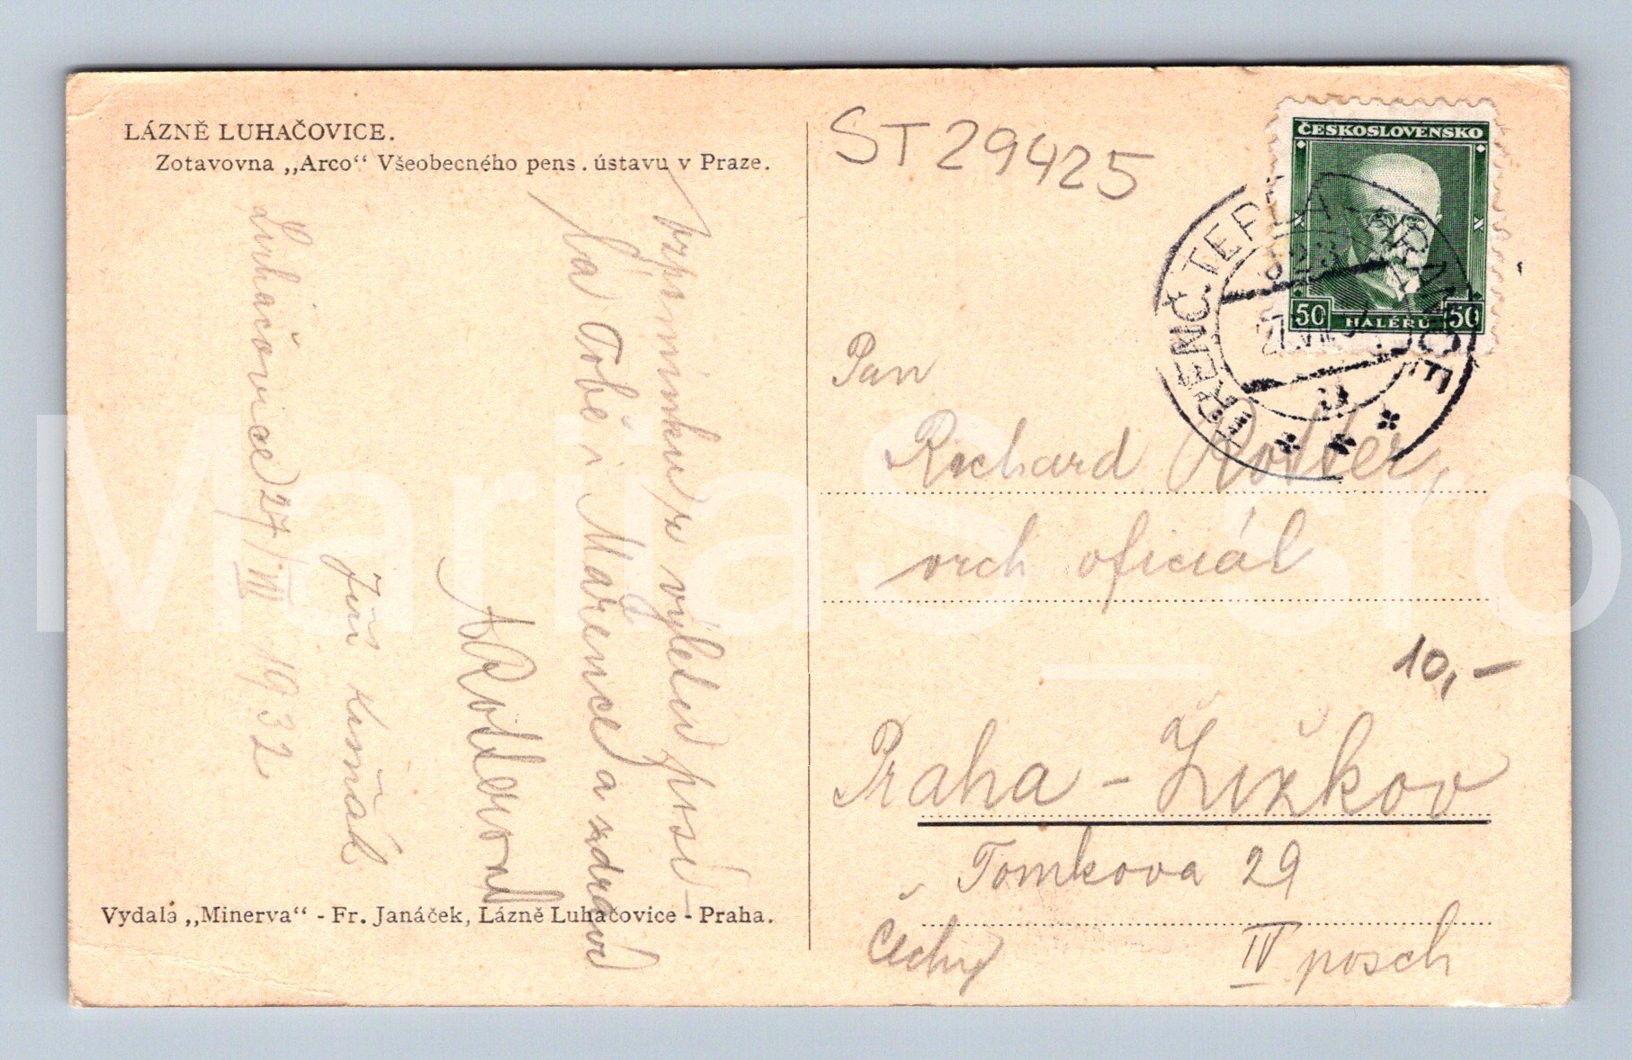 LÁZNĚ LUHAČOVICE.
Zotavovna „Arco“ Všeobecného pens. ústavu v Praze.
Luhačovice 27/VII 1932
vzpomínku z výletu posí-
lá Tobě i Mařence a zdraví
ARotterová
Jiří
Vydala „Minerva“ - Fr. Janáček, Lázně Luhačovice - Praha.
ST 29425
ČESKOSLOVENSKO
50 HALÉŘŮ 50
TRENČ. TEPLÁ
Pan
Richard Rotter,
vrch oficiál
10,-
Praha - Žižkov
Tomkova 29
Čechy
IV posch
MarijaS_sro